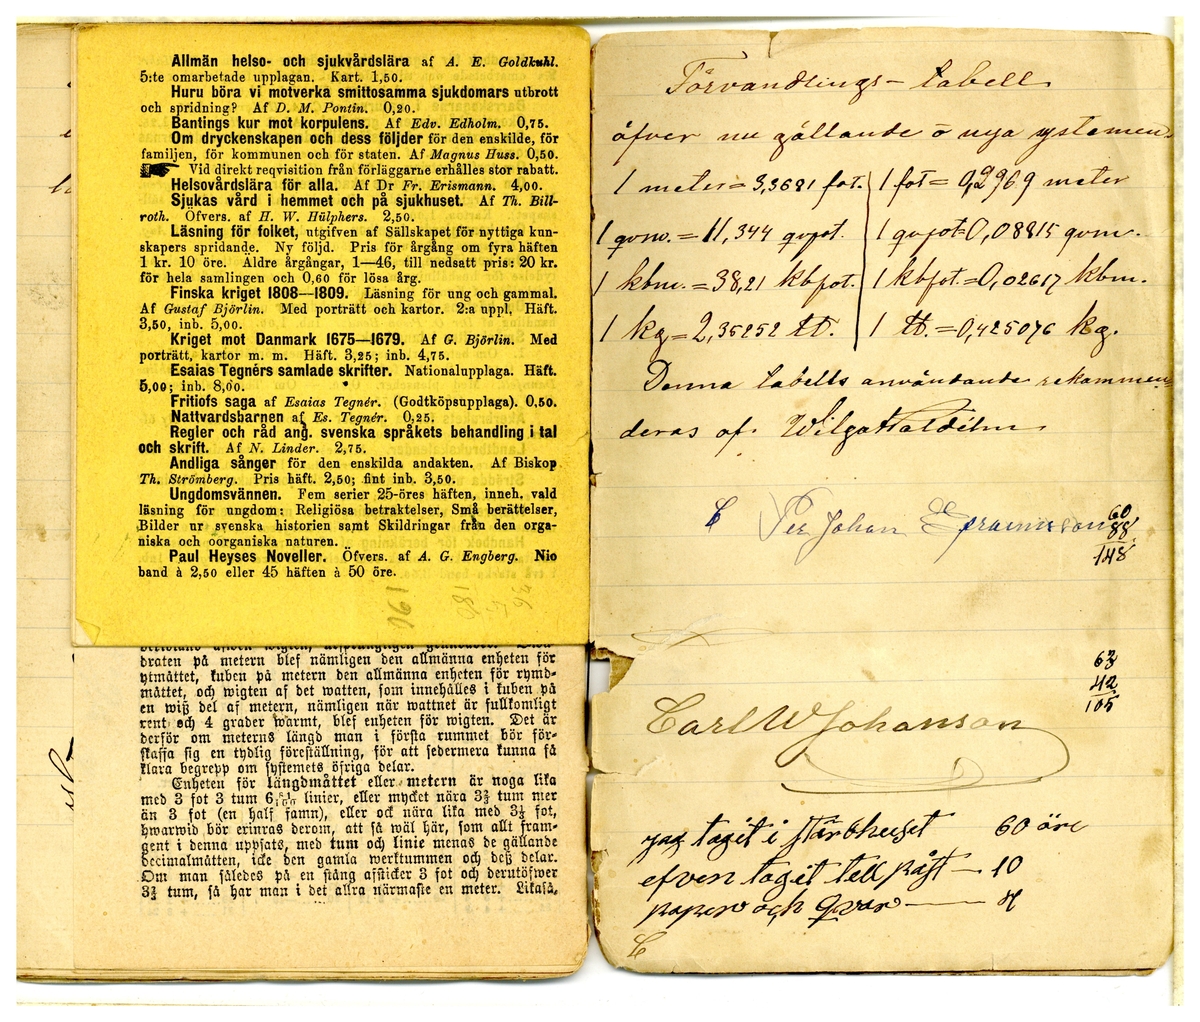 Allmän helso- och sjukvårdslära af A. E. Goldkuhl.
5:te omarbetade upplagan. Kart. 1,50.
Huru böra vi motverka smittosamma sjukdomars utbrott
och spridning? Af D. M. Pontin. 0,20.
Bantings kur mot korpulens. Af Edv. Edholm. 0,75.
Om dryckenskapen och dess följder för den enskilde, för
familjen, för kommunen och för staten. Af Magnus Huss. 0,50.
Vid direkt reqvisition från förläggarne erhålles stor rabatt.
Helsovårdslära för alla. Af Dr Fr. Erismann. 4,00.
Sjukas vård i hemmet och på sjukhuset. Af Th. Bill-
roth. Öfvers. af H. W. Hülphers. 2,50.
Läsning för folket, utgifven af Sällskapet för nyttiga kun-
skapers spridande. Ny följd. Pris för årgång om fyra häften
1 kr. 10 öre. Äldre årgångar, 1—46, till nedsatt pris: 20 kr.
för hela samlingen och 0,60 för lösa årg.
Finska kriget 1808—1809. Läsning för ung och gammal.
Af Gustaf Björlin. Med porträtt och kartor. 2:a uppl. Häft.
3,50, inb. 5,00.
Kriget mot Danmark 1675—1679. Af G. Björlin. Med
porträtt, kartor m. m. Häft. 3,25; inb. 4,75.
Esaias Tegnérs samlade skrifter. Nationalupplaga. Häft.
5,00; inb. 8,00.
Fritiofs saga af Esaias Tegnér. (Godtköpsupplaga). 0,50.
Nattvardsbarnen af Es. Tegnér. 0,25.
Regler och råd ang. svenska språkets behandling i tal
och skrift. Af N. Linder. 2,75.
Andliga sånger för den enskilda andakten. Af Biskop
Th. Strömberg. Pris häft. 2,50; fint inb. 3,50.
Ungdomsvännen. Fem serier 25-öres häften, inneh. vald
läsning för ungdom: Religiösa betraktelser, Små berättelser,
Bilder ur svenska historien samt Skildringar från den orga-
niska och oorganiska naturen.
Paul Heyses Noveller. Öfvers. af A. G. Engberg. Nio
band à 2,50 eller 45 häften à 50 öre.
190
draten på metern blef nämligen den allmänna enheten för
ytmåttet, kuben på metern den allmänna enheten för rymd-
måttet, och wigten af det watten, som innehålles i kuben på
en wiß del af metern, nämligen när wattnet är fullkomligt
rent och 4 grader warmt, blef enheten för wigten. Det är
derför om meterns längd man i första rummet bör för-
skaffa sig en tydlig föreställning, för att sedermera kunna få
klara begrepp om systemets öfriga delar.
Enheten för längdmåttet eller metern är noga lika
med 3 fot 3 tum 6 81/100 linier, eller mycket nära 3 2/3 tum mer
än 3 fot (en half famn), eller ock nära lika med 3 1/3 fot,
hwarwid bör erinras derom, att så wäl här, som allt fram-
gent i denna uppsats, med tum och linie menas de gällande
decimalmåtten, icke den gamla werktummen och deß delar.
Om man således på en stång afsticker 3 fot och derutöfwer
3 2/3 tum, så har man i det allra närmaste en meter. Likaså,
Förvandlings-tabell
öfver nu gällande o nya systemen.
1 meter = 3,3681 fot. 1 fot = 0,2969 meter
1 qvm. = 11,344 qvfot. 1 qvfot = 0,08815 qvm.
1 kbm. = 38,21 kbfot. 1 kbfot. = 0,02617 kbm.
1 kg = 2,35252 ℔. 1 ℔. = 0,425076 kg.
Denna tabells användande rekommen-
deras af
C Per Johan
60
88
148
63
42
105
Carl W Johanson
jag tagit i stärbhuset 60 öre
efven taget tell påst — 10
paper och qvar — 4
C